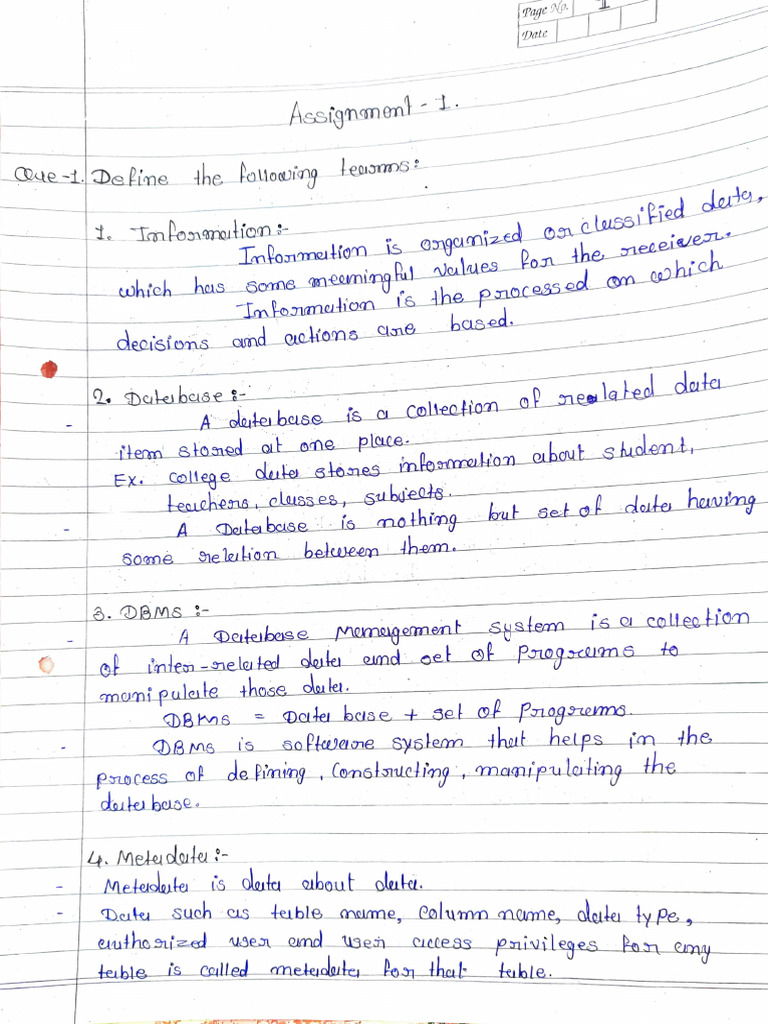 Page No. 1
Date
Assignment - 1.
Que-1. Define the following tearms:
1. Information:-
Information is organized or classified data,
which has some meaningful values for the receiver.
Information is the processed on which
decisions and actions are based.
2. Database :-
- A database is a collection of related data
item stored at one place.
Ex. college data stores information about student,
teachers, classes, subjects.
- A Database is nothing but set of data having
some relation between them.
3. DBMS :-
- A Database Management system is a collection
of inter-related data and set of Programs to
manipulate those data.
DBMS = Data base + set of Programs.
- DBMS is software system that helps in the
process of defining, Constructing, manipulating the
database.
4. Metadata:-
- Metadata is data about data.
- Data such as table name, column name, data type,
authorized user and user access privileges for any
table is called metadata for that table.